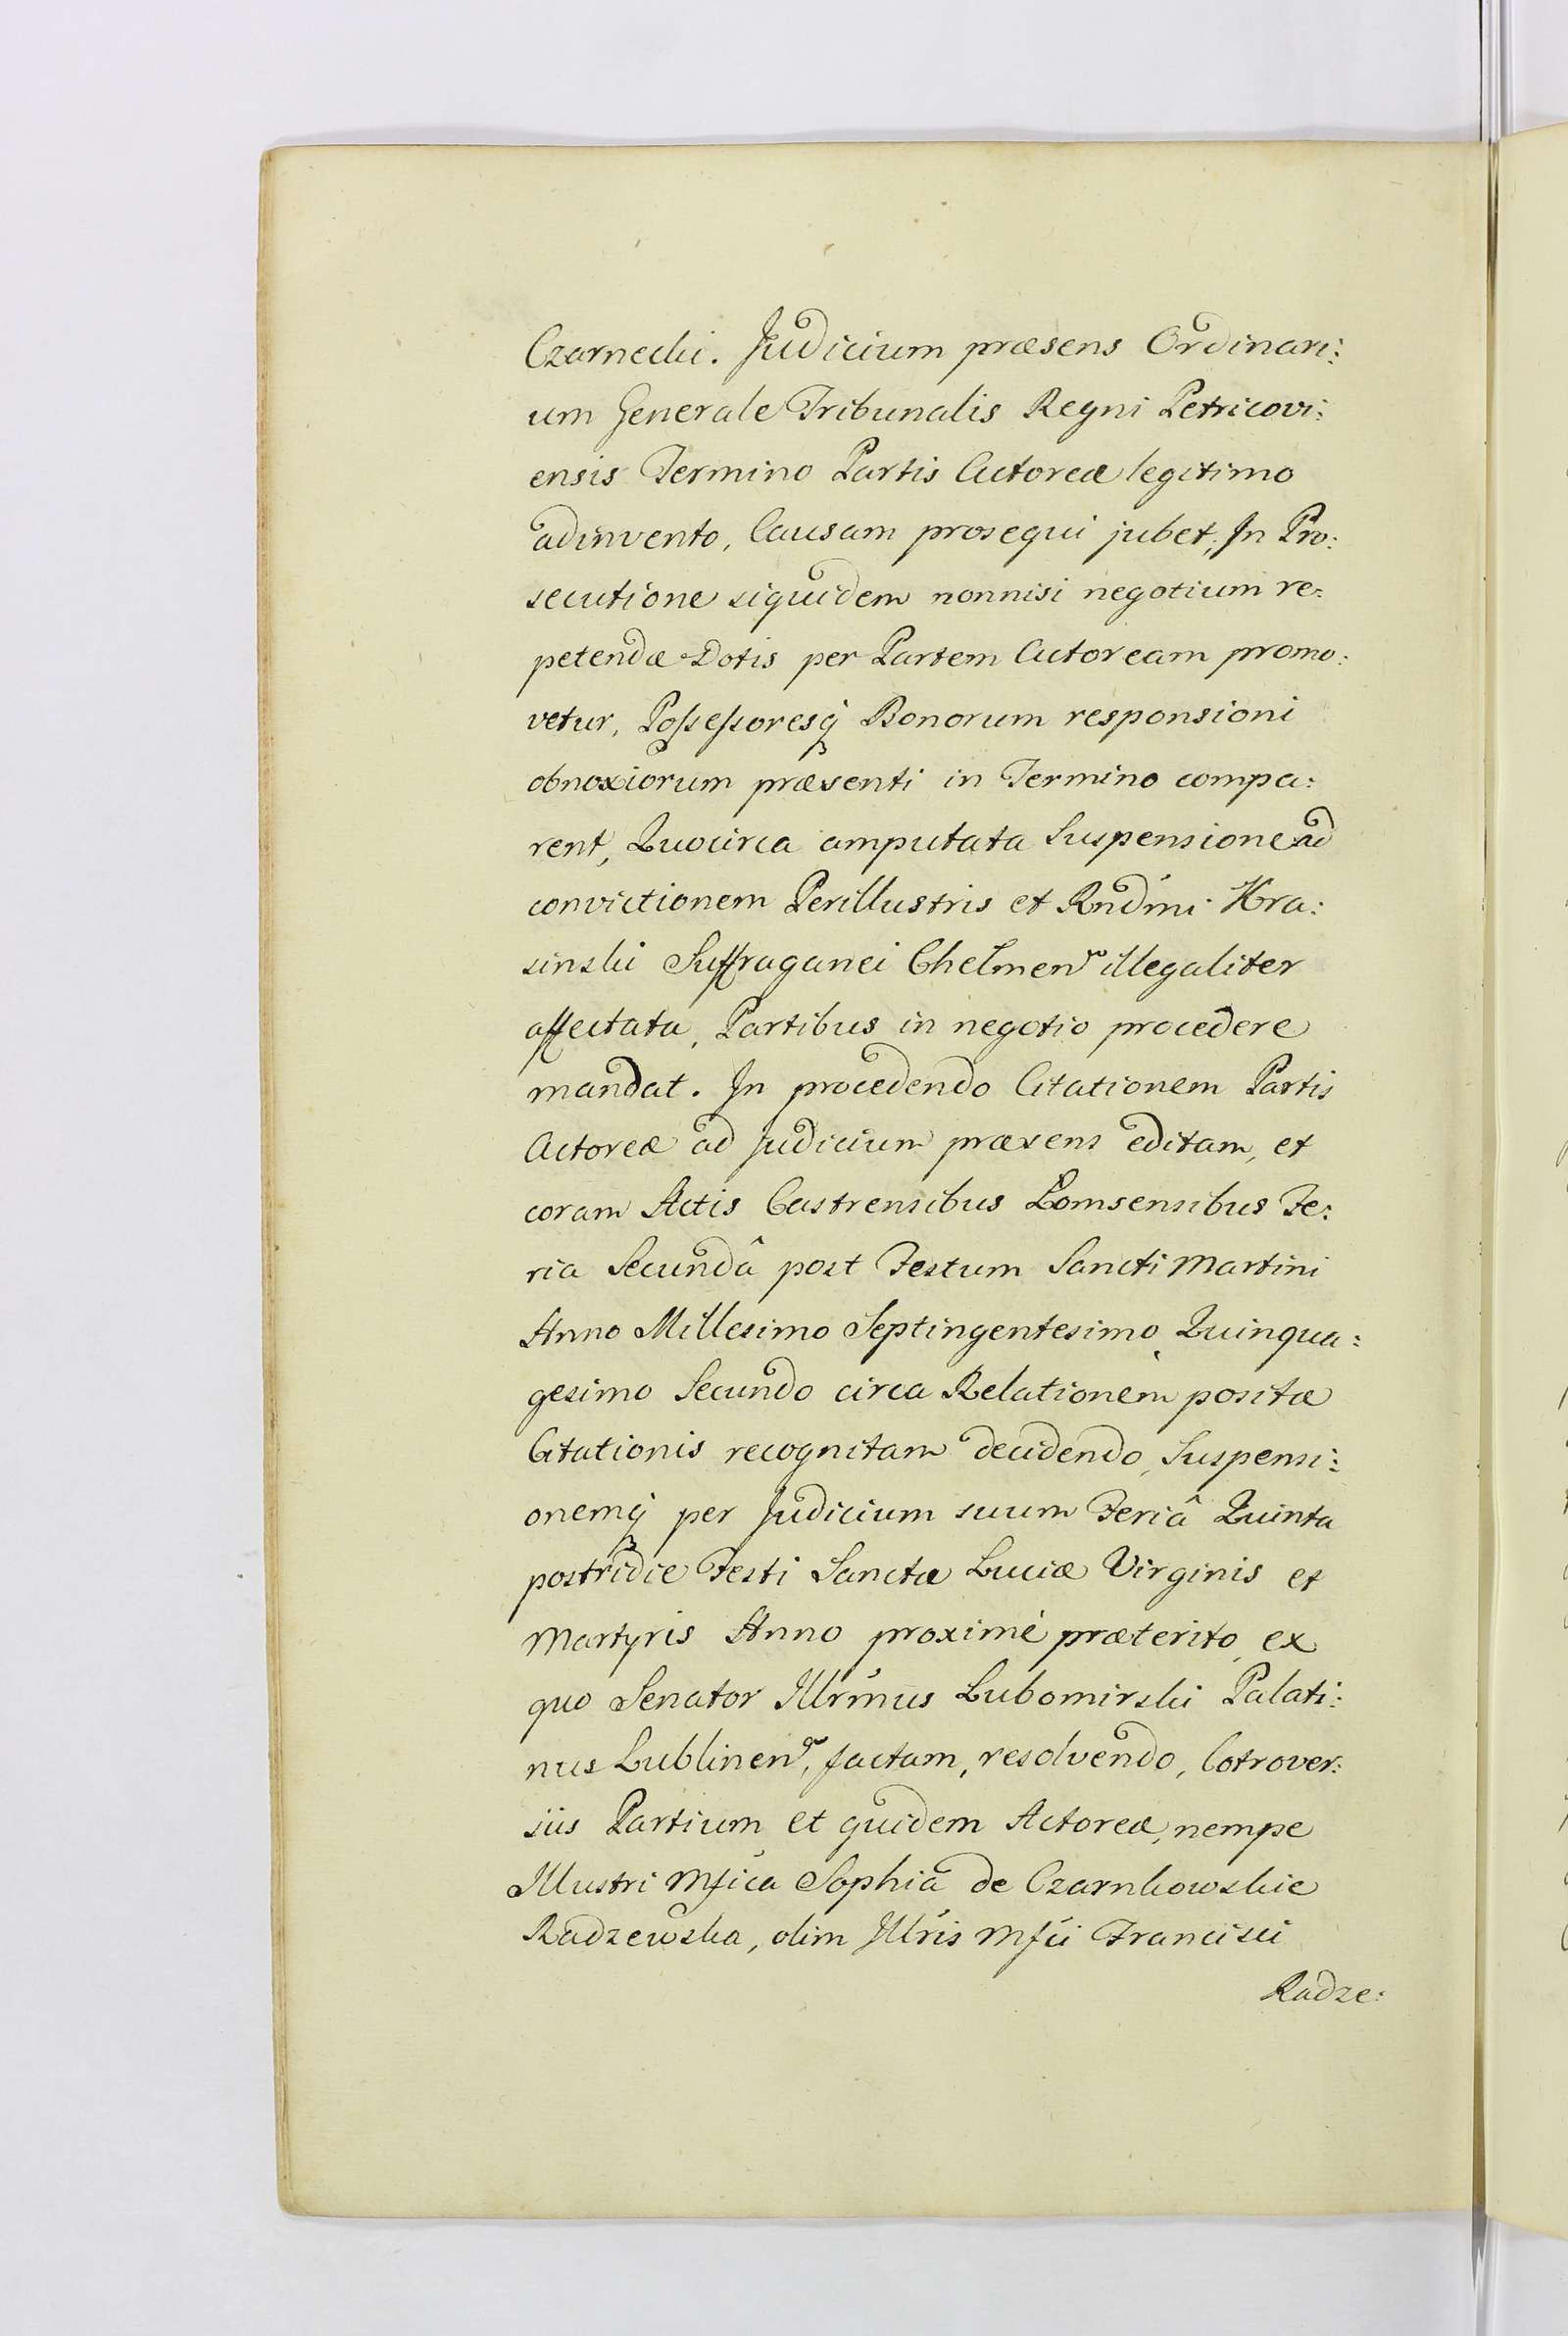 Czarnecki. Judicium præsens Ordinari:
um Generale Tribunalis Regni Petricovi:
ensis Termino Partis Actoreæ legitimo
adinvento, Causam prosequi jubet, In Pro:
secutione siquidem nonnisi negotium re:
petendæ Dotis per Partem Actoream promo:
vetur, Possessoresq̀ Bonorum responsioni
obnoxiorum præsenti in Termino compa:
rent, Quocirca amputata Suspensione ad
convictionem Perillustris et Rndmi Kra:
sinski Suffraganei Chelmen illegaliter
affectata, Partibus in negotio procedere
mandat. In procedendo Citationem Partis
Actoreæ ad Judicium præsens editam, et
coram Actis Castrensibus Lomsensibus Fe:
ria Secundâ post Festum Sancti Martini
Anno Millesimo Septingentesimo Quinqua:
gesimo Secundo circa Relationem positæ
Citationis recognitam decidendo, Suspensi:
onemq̀ per Judicium suum Feriâ Quinta
postridie Festi Sanctæ Luciæ Virginis et
Martyris Anno proximè præterito, ex
quo Senator Illrmus Lubomirski Palati:
nus Lublinen, factam, resolvendo, Cotrover:
siis Partium et quidem Actoreæ, nempe
Illustri Mfica Sophiâ de Czarnkowskie
Radzewska, olim Illris Mfci Francisci
Radze: